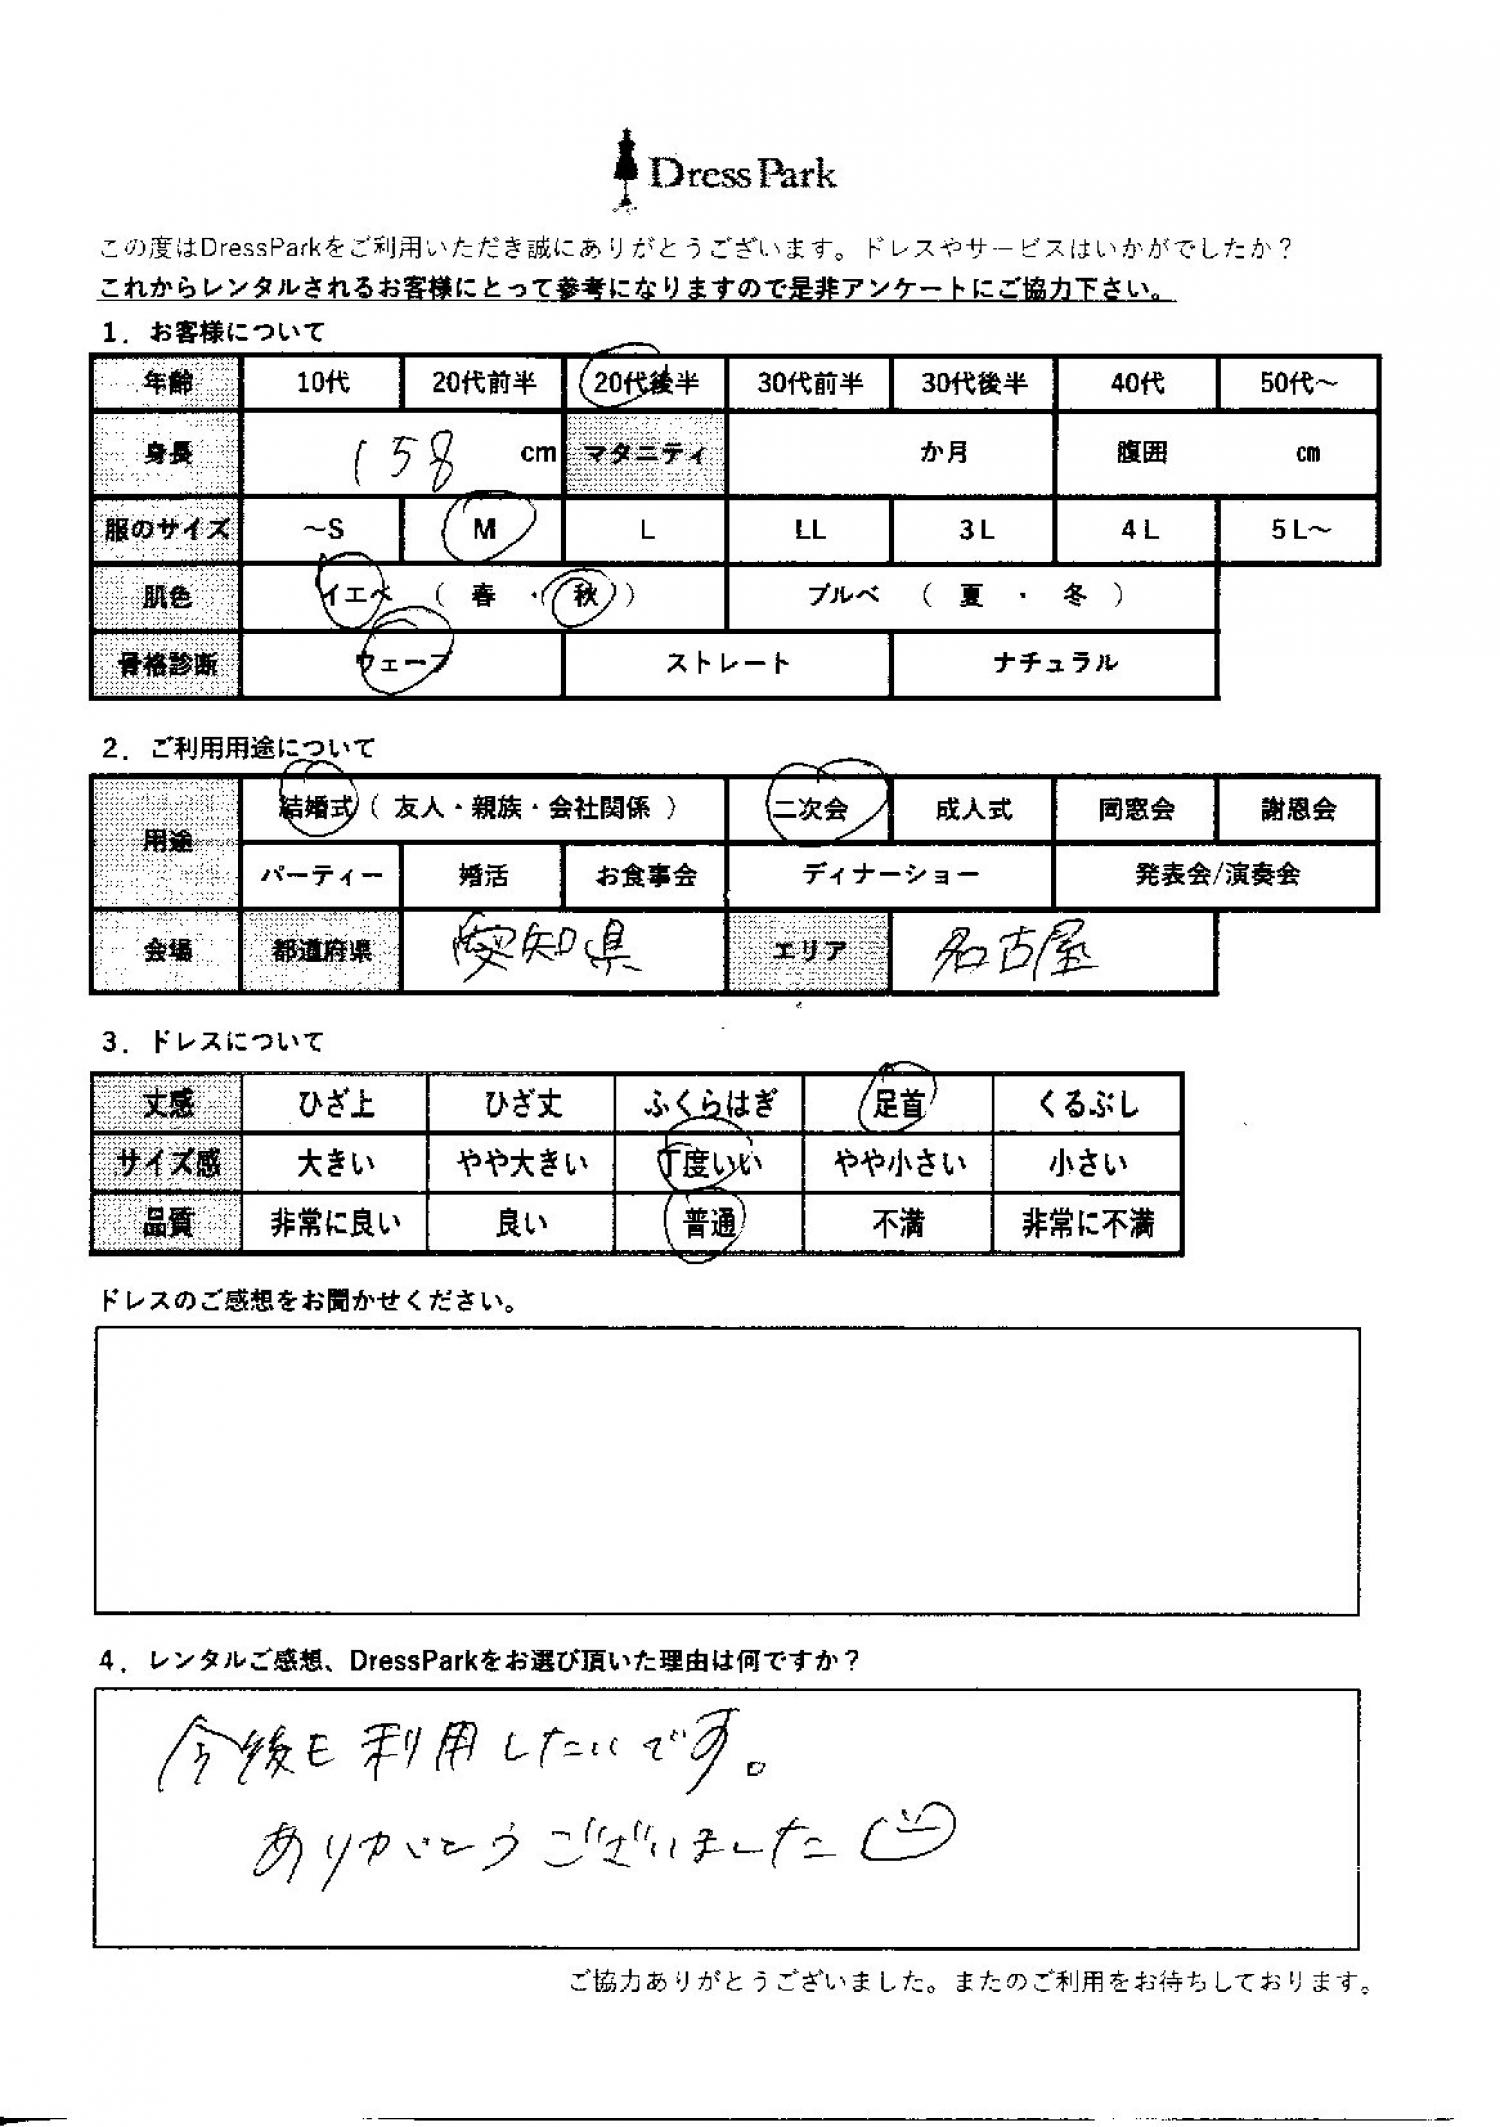 Dress Park
この度はDressParkをご利用いただき誠にありがとうございます。ドレスやサービスはいかがでしたか？
これからレンタルされるお客様にとって参考になりますので是非アンケートにご協力下さい。
1．お客様について
年齢 10代 20代前半 20代後半 30代前半 30代後半 40代 50代～
身長 158 cm マタニティ か月 腹囲 cm
服のサイズ ～S M L LL 3L 4L 5L～
肌色 イエベ （ 春 ・ 秋 ） ブルベ （ 夏 ・ 冬 ）
骨格診断 ウェーブ ストレート ナチュラル
2．ご利用用途について
用途 結婚式（ 友人・親族・会社関係 ） 二次会 成人式 同窓会 謝恩会
パーティー 婚活 お食事会 ディナーショー 発表会/演奏会
会場 都道府県 愛知県 エリア 名古屋
3．ドレスについて
丈感 ひざ上 ひざ丈 ふくらはぎ 足首 くるぶし
サイズ感 大きい やや大きい 丁度いい やや小さい 小さい
品質 非常に良い 良い 普通 不満 非常に不満
ドレスのご感想をお聞かせください。
4．レンタルご感想、DressParkをお選び頂いた理由は何ですか？
今後も利用したいです。
ありがとうございました
ご協力ありがとうございました。またのご利用をお待ちしております。